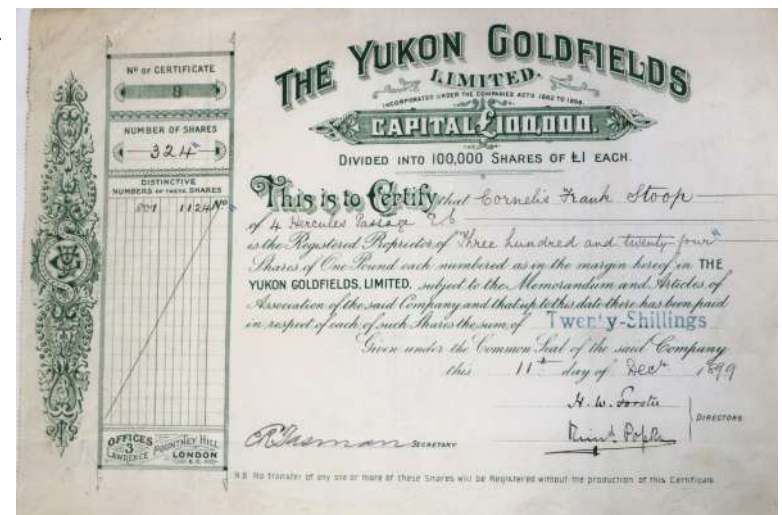 Nº OF CERTIFICATE
8
NUMBER OF SHARES
324
DISTINCTIVE
NUMBERS OF THESE SHARES
801 1124
OFFICES
3
LAWRENCE POUNTNEY HILL
LONDON
E.C.
THE YUKON GOLDFIELDS
LIMITED.
INCORPORATED UNDER THE COMPANIES ACTS 1862 TO 1898.
CAPITAL £100,000.
DIVIDED INTO 100,000 SHARES OF £1 EACH.
This is to Certify that Cornelis Frank Stoop
of 4 Hercules Passage E6
is the Registered Proprietor of Three hundred and twenty-four
Shares of One Pound each numbered as in the margin hereof in THE
YUKON GOLDFIELDS, LIMITED, subject to the Memorandum and Articles of
Association of the said Company and that up to this date there has been paid
in respect of each of such Shares the sum of Twenty-Shillings
Given under the Common Seal of the said Company
this 11th day of Decr 1899
H. W. Forster
DIRECTORS
SECRETARY
N.B. No transfer of any one or more of these Shares will be Registered without the production of this Certificate